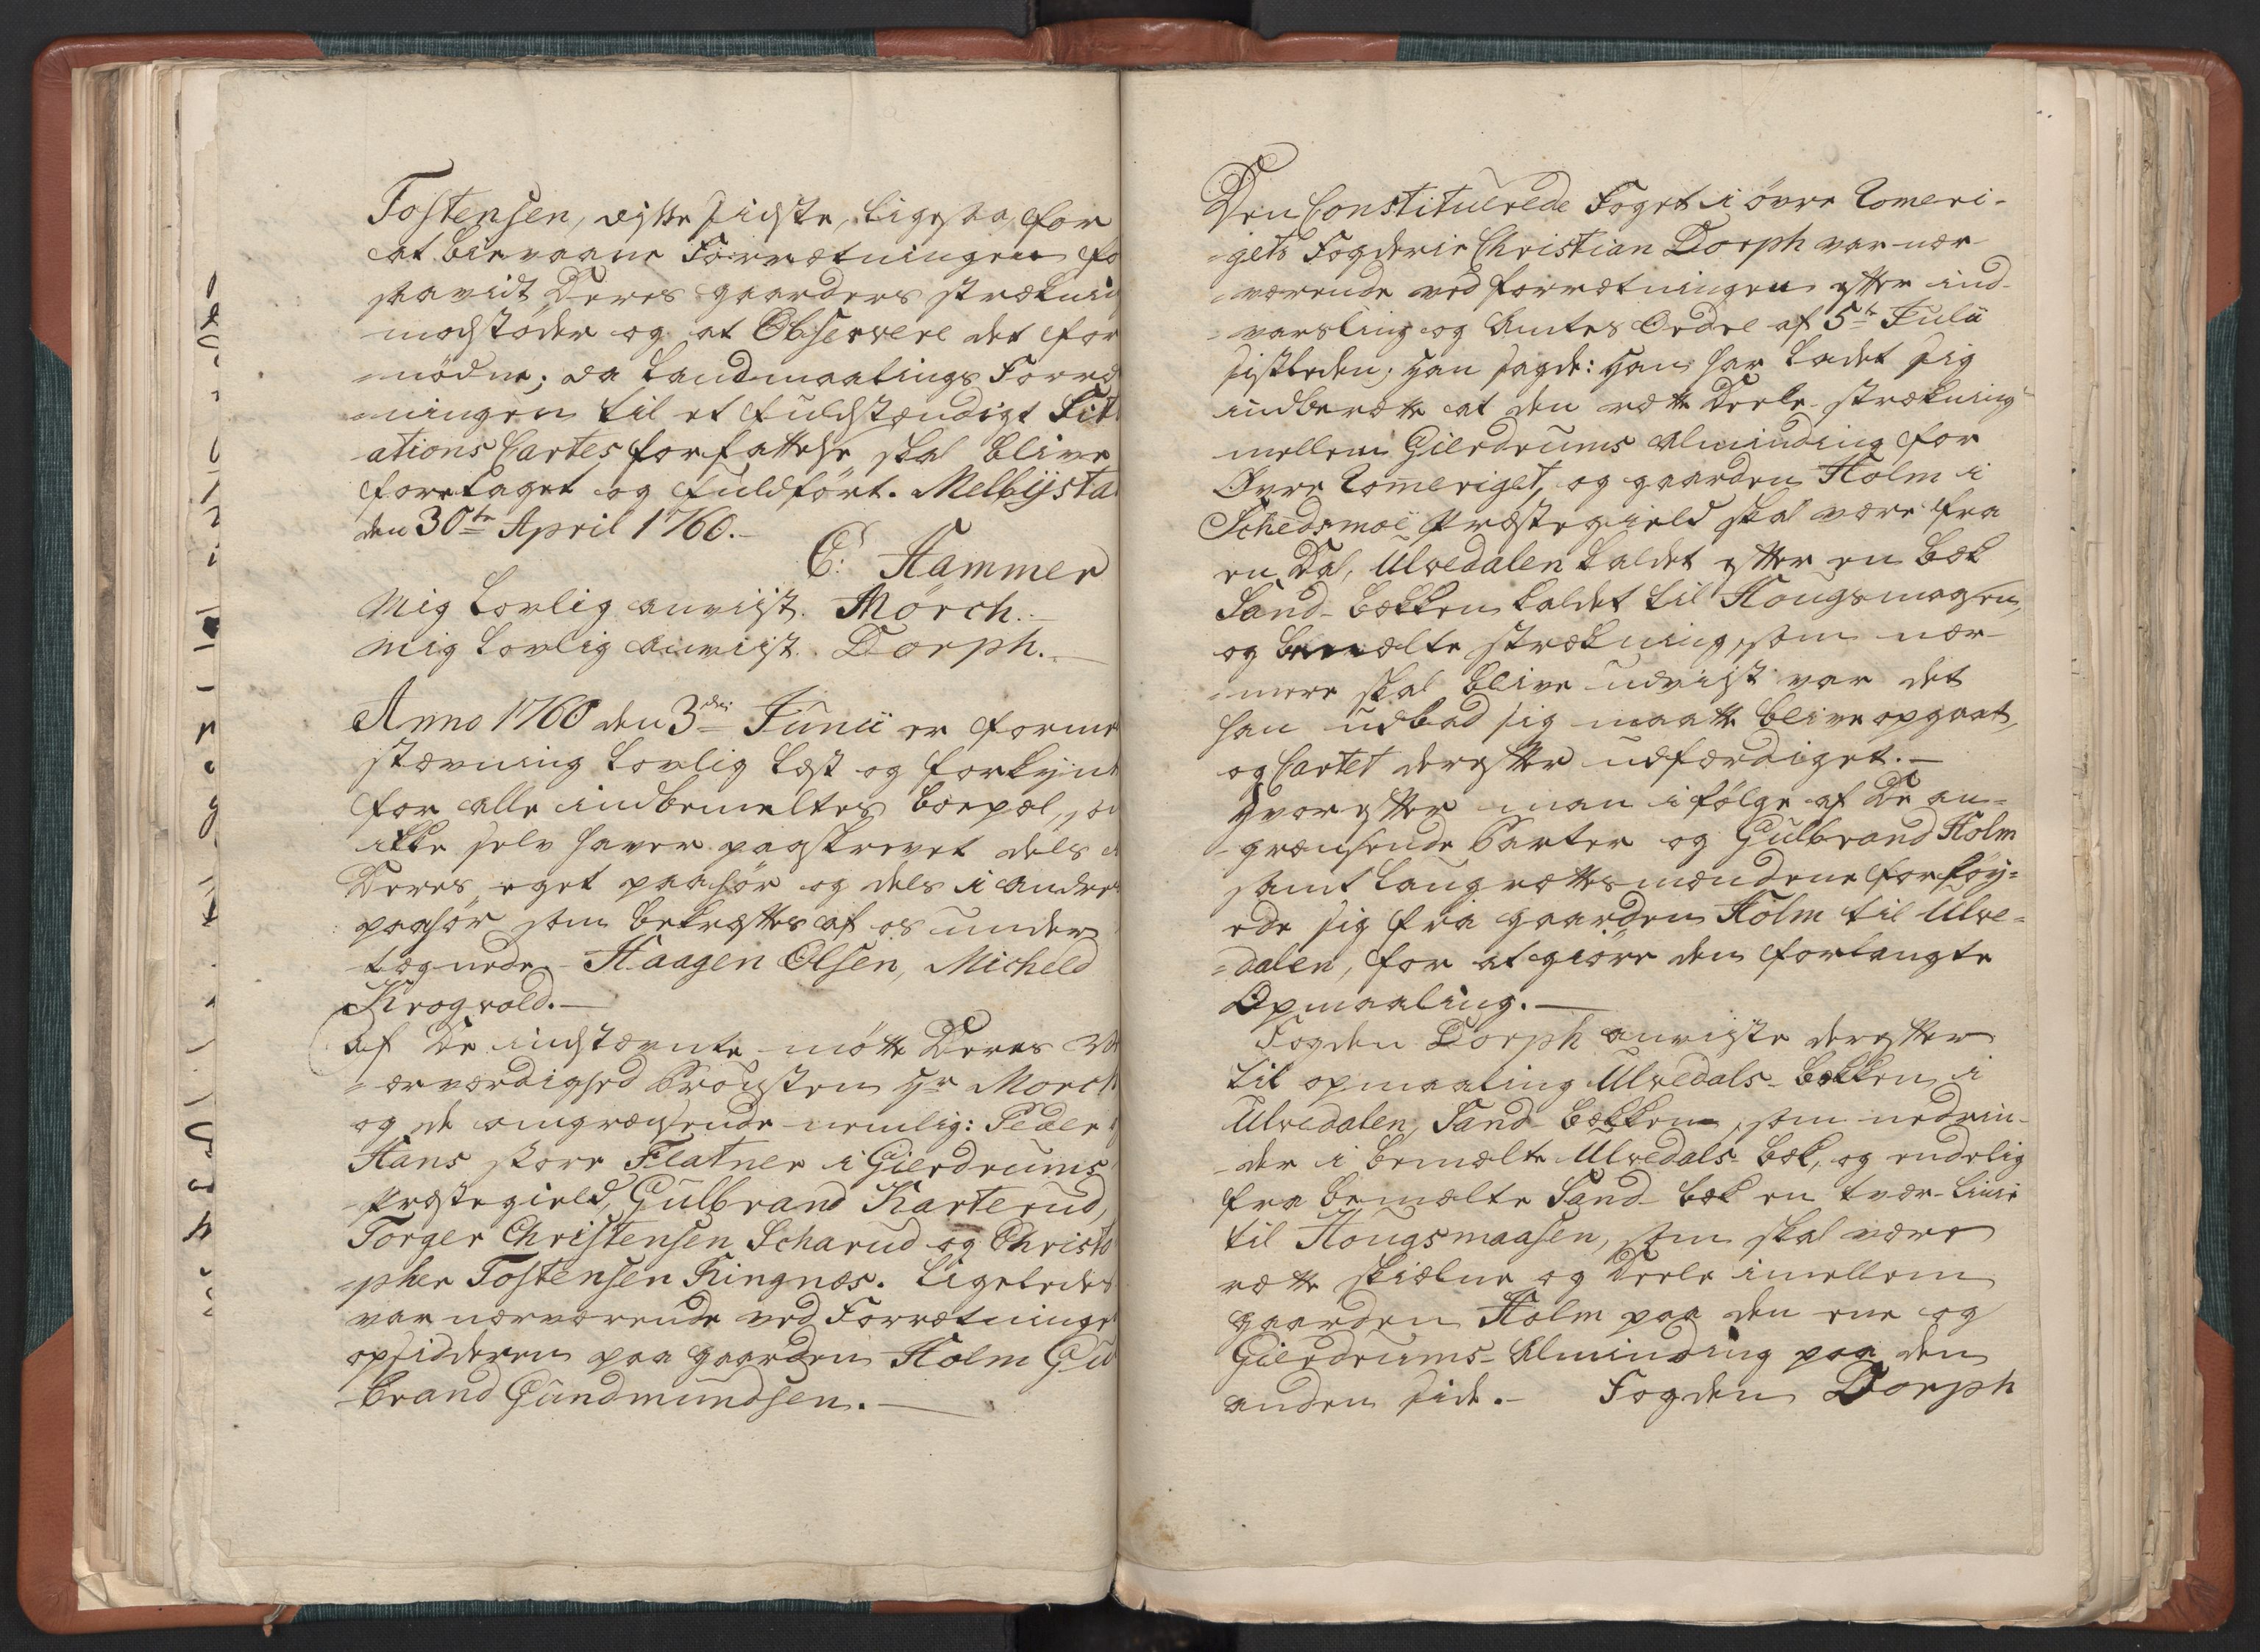 Tostensen, disse sidste, ligesaa for
at bievaane Forretningen fo
saavidt Deres gaarders stræknin
modstöder og at Observere det for
nödne; da Landmaalings Forræ
ningen til et fuldstændigt Sit
ations Cartes forfattelse skal blive
foretaget og fuldfört. Melbysta
den 30te April 1760.-
C: Hammer
Mig lovlig anviist. Mörch.-
Mig lovlig anviist. Dorph.-
Anno 1760 den 3die Junii er forme
stævning lovlig læst og forkynt
for alle indbemeltes boepæl, som
ikke selv haver paaskrevet dels i
Deres eget paahör og dels i andres
paahör som bekræftes af os under
tegnede.- Haagen Olsen, Micheld
Krogvold.-
Af De indstævnte mötte Deres
ærværdighed Provsten Hr Morch
og de omgrændsende nemlig: Peder og
Hans store Flatner i Gierdrums
Præstegield, Gulbrand Karterud,
Torger Christensen Scharud og Christo
pher Tostensen Ringnæs. Ligeledes
var nærværende ved Forretninge
opsidderen paa gaarden Holm Gu
brand Gundmundsen.-
Den Constituerede Foget i övre Romeri-
-gets Fogderie Christian Dorph var nær-
-værende ved forretningen efter ind-
-varsling og Amtes Ordre af 5te Julii
sistleden; Han sagde: Han har ladet sig
indberette at den rette Deele-strækning
mellem Gierdrums Alminding for
Övre Romeriget, og gaarden Holm i
Schedsmoe Præstegield skal være fra
en Dal, Ulvedalen kaldet efter en bæk
Sand-bækken kaldet til Hougsmaasen,
og bemælte strækning, som nær-
-mere skal blive udviist var det
han udbad sig maatte blive opgaat,
og Cartet derefter udfærdiget.-
Hvorefter man i fölge af De an-
-grændsende Parter og Gulbrand Holm
samt Laugrettesmændene forföy-
ede sig fra gaarden Holm til Ulve-
-dalen, for at giöre den forlangte
Opmaaling.-
Fogden Dorph anviiste derefter
til opmaaling Ulvedals-bækken i
Ulvedalen, Sand-bækken, som nedrin-
-der i bemælte Ulvedals-bæk, og endelig
fra bemælte Sand-bæk en tvær-linie
til Hougsmaasen, som skal være
rette skielne og Deele imellem
gaarden Holm paa den ene og
Gierdrums-Alminding paa den
anden side.- Fogden Dorph